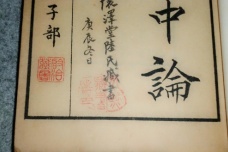 中論
懷澤堂陸氏藏書
庚辰冬日
子部